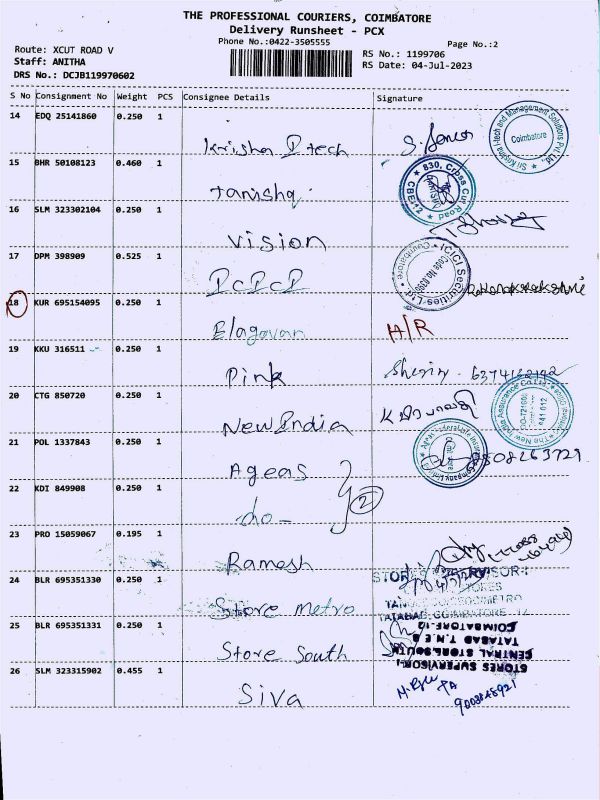 THE PROFESSIONAL COURIERS, COIMBATORE
Delivery Runsheet - PCX
Phone No.:0422-3505555
Page No.:2
Route: XCUT ROAD V
RS No.: 1199706
Staff: ANITHA
RS Date: 04-Jul-2023
DRS No.: DCJB119970602
S No Consignment No Weight PCS Consignee Details Signature
14 EDQ 25141860 0.250 1
Krisha I tech
Coimbatore
15 BHR 50108123 0.460 1
Tanishq
830, Cross Cut Road
CBE-12
16 SLM 323302104 0.250 1
Vision
17 DPM 398909 0.525 1
ICICI
ICICI Securities Ltd
Coimbatore
18 KUR 695154095 0.250 1
Elagovan
A/R
19 KKU 316511 0.250 1
Pink
20 CTG 850720 0.250 1
New India
The New India Assurance Co. Ltd.
641 012
21 POL 1337843 0.250 1
Ageas
9508263729
22 KDI 849908 0.250 1
-do-
2
23 PRO 15059067 0.195 1
Ramesh
24 BLR 695351330 0.250 1
Store Metro
STORES
TATABAD, COIMBATORE-12
25 BLR 695351331 0.250 1
Store South
COIMBATORE-12
TATABAD T.N.E.B
CENTRAL STORE/SOUTH
STORES SUPERVISOR-I
26 SLM 323315902 0.455 1
Siva